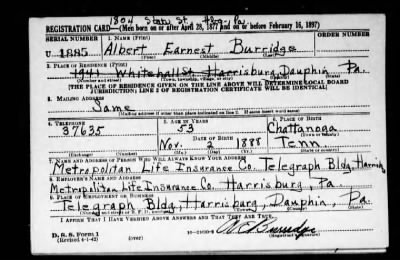 1804 State St. Hbg. Pa.
REGISTRATION CARD—(Men born on or after April 28, 1877 and on or before February 16, 1897)
SERIAL NUMBER 1. NAME (Print) ORDER NUMBER
U 1885 Albert Earnest Burridge
(First) (Middle) (Last)
2. PLACE OF RESIDENCE (Print)
1941 Whitehall St. Harrisburg, Dauphin Pa.
(Number and street) (Town, township, village, or city) (County) (State)
[THE PLACE OF RESIDENCE GIVEN ON THE LINE ABOVE WILL DETERMINE LOCAL BOARD
JURISDICTION; LINE 2 OF REGISTRATION CERTIFICATE WILL BE IDENTICAL]
3. MAILING ADDRESS
Same
(Mailing address if other than place indicated on line 2. If same insert word same)
4. TELEPHONE 5. AGE IN YEARS 6. PLACE OF BIRTH
37635 53 Chattanoga
DATE OF BIRTH (Town or county)
Nov. 2 1888 Tenn.
(Exchange) (Number) (Mo.) (Day) (Yr.) (State or country)
7. NAME AND ADDRESS OF PERSON WHO WILL ALWAYS KNOW YOUR ADDRESS
Metropolitan Life Insurance Co. Telegraph Bldg. Harrisburg
8. EMPLOYER'S NAME AND ADDRESS
Metropolitan Life Insurance Co. Harrisburg, Pa.
9. PLACE OF EMPLOYMENT OR BUSINESS
Telegraph Bldg, Harrisburg, Dauphin, Pa.
(Number and street or R. F. D. number) (Town) (County) (State)
I AFFIRM THAT I HAVE VERIFIED ABOVE ANSWERS AND THAT THEY ARE TRUE.
D. S. S. Form 1
(Revised 4-1-42) (over) A E Burridge
(Registrant's signature)